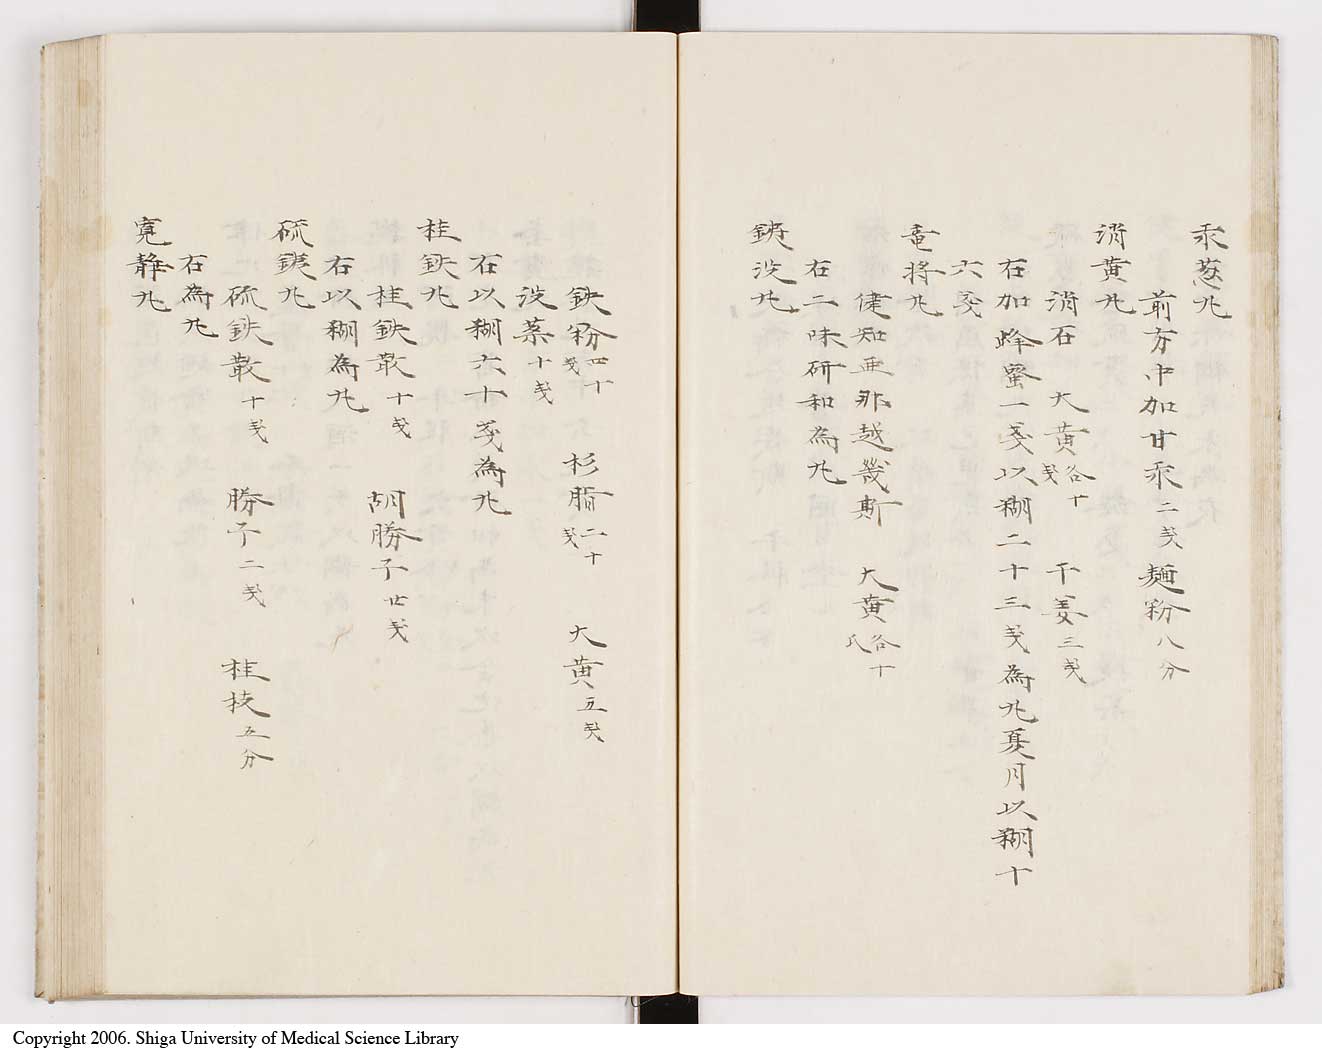 汞葱丸
前方中加甘汞二戔麺粉八分
消黄丸
消石 大黄各十戔 干姜三戔
右加蜂蜜一戔以糊二十三戔為丸夏月以糊十
六戔
竜将丸
健知亜那越幾斯 大黄各十氏
右二味研和為丸
鉄没丸
鉄粉四十戔 杉脂二十戔 大黄五戔
没薬十戔
右以糊六十戔為丸
桂鉄丸
桂鉄散十戔 胡勝子廿戔
右以糊為丸
硫鉄丸
硫鉄散十戔 勝子二戔 桂枝五分
右為丸
寛静丸
Copyright 2006. Shiga University of Medical Science Library